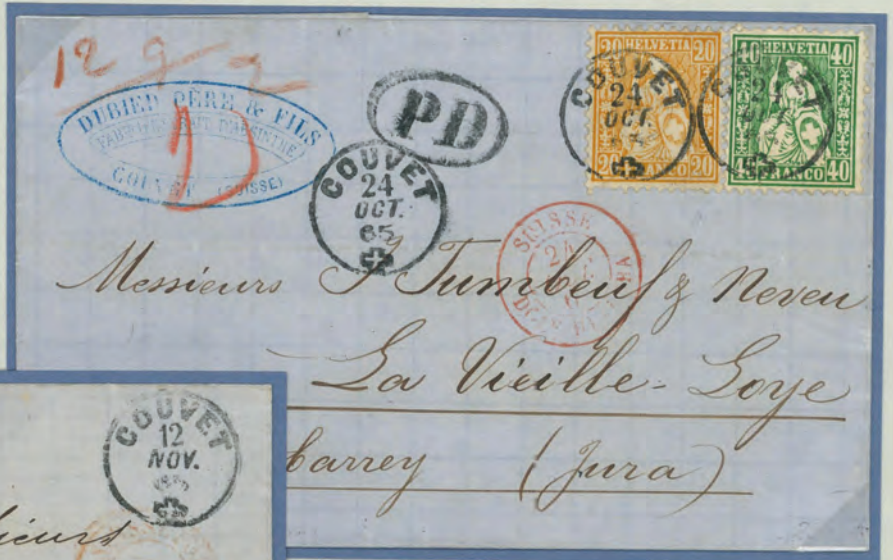 12 9 2
DUBIED PÈRE & FILS
FABRICANTS D'ABSINTHE
COUVET (SUISSE)
D
PD
COUVET
24
OCT.
65
20 HELVETIA 20
20 FRANCO 20
COUVET
24
OCT.
40 HELVETIA 40
40 FRANCO 40
24
SUISSE
24
Messieurs J Tumbeuf & Neveu
La Vieille-Loye
barrey (Jura)
COUVET
12
NOV.